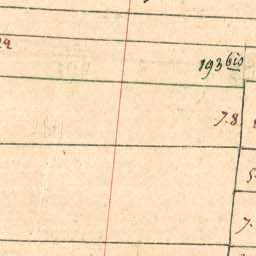 193 bis
7.8.
7.